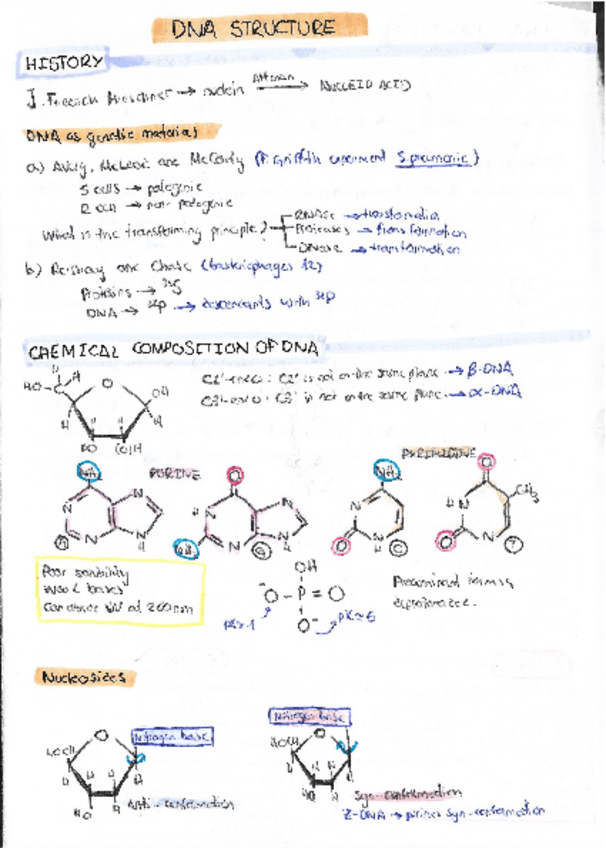 DNA STRUCTURE
HISTORY
J. Friedrich Miescher → nuclein Altman → NUCLEID ACID
DNA as genetic material
a) Avery, McLeod and McCarty (F. Griffith experiment S.pneumonie)
S cells → patogenic
R cell → non-patogenic
What is the transforming principle?
RNAse → transformation
Proteases → transformation
DNase → transformation
b) Hershey and Chase (bacteriophages T2)
Proteins → 35S
DNA → 32P → descendants with 32P
CHEMICAL COMPOSITION OF DNA
C2'-endo: C2' is not on the same plane → β-DNA
is not on the same plane → α-DNA
HO-C
H
O
OH
H
H
H
H
HO
(O)H
PURINE
PYRIMIDINE
NH2
N
N
N
N
H
A
O
H N
NH2
N
N
N
H
G
NH2
N
O
N
H
C
O
H N
O
N
CH3
T
Poor solubility
Weak bases
Can absorb UV at 260nm
OH
-O-P=O
O-
pK≈1
pK≈6
Predominant form is
deprotonated.
Nucleosides
Nitrogen base
O
H
H
H
H
HO
Anti-conformation
Nitrogen base
O
H
H
H
H
HO
Syn-conformation
Z-DNA → purines syn-conformation